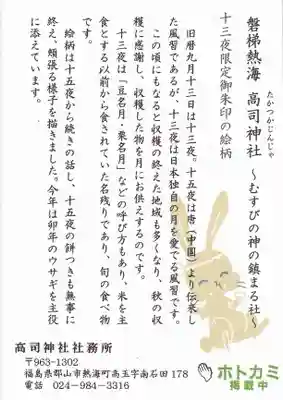 磐梯熱海 高司神社 ~むすびの神の鎮まる社~
たかつかじんじゃ
十三夜限定御朱印の絵柄
旧暦九月十三日は十三夜。十五夜は唐(中国)より伝来し
た風習であるが、十三夜は日本独自の月を愛でる風習です。
この頃にもなると収穫の終えた地域も多くなり、秋の収
穫に感謝し、収穫した物を月にお供えするのです。
十三夜は「豆名月・栗名月」などの呼び方もあり、米を主
食とする以前から食されていた名残りであり、旬の食べ物
です。
絵柄は十五夜から続きの話し、十五夜の餅つきも無事に
終え、頬張る様子を描きました。今年は卯年のウサギを主役
に添えています。
高司神社社務所
〒963-1302
福島県郡山市熱海町高玉字南石田178
電話 024-984-3316
ホトカミ
掲載中